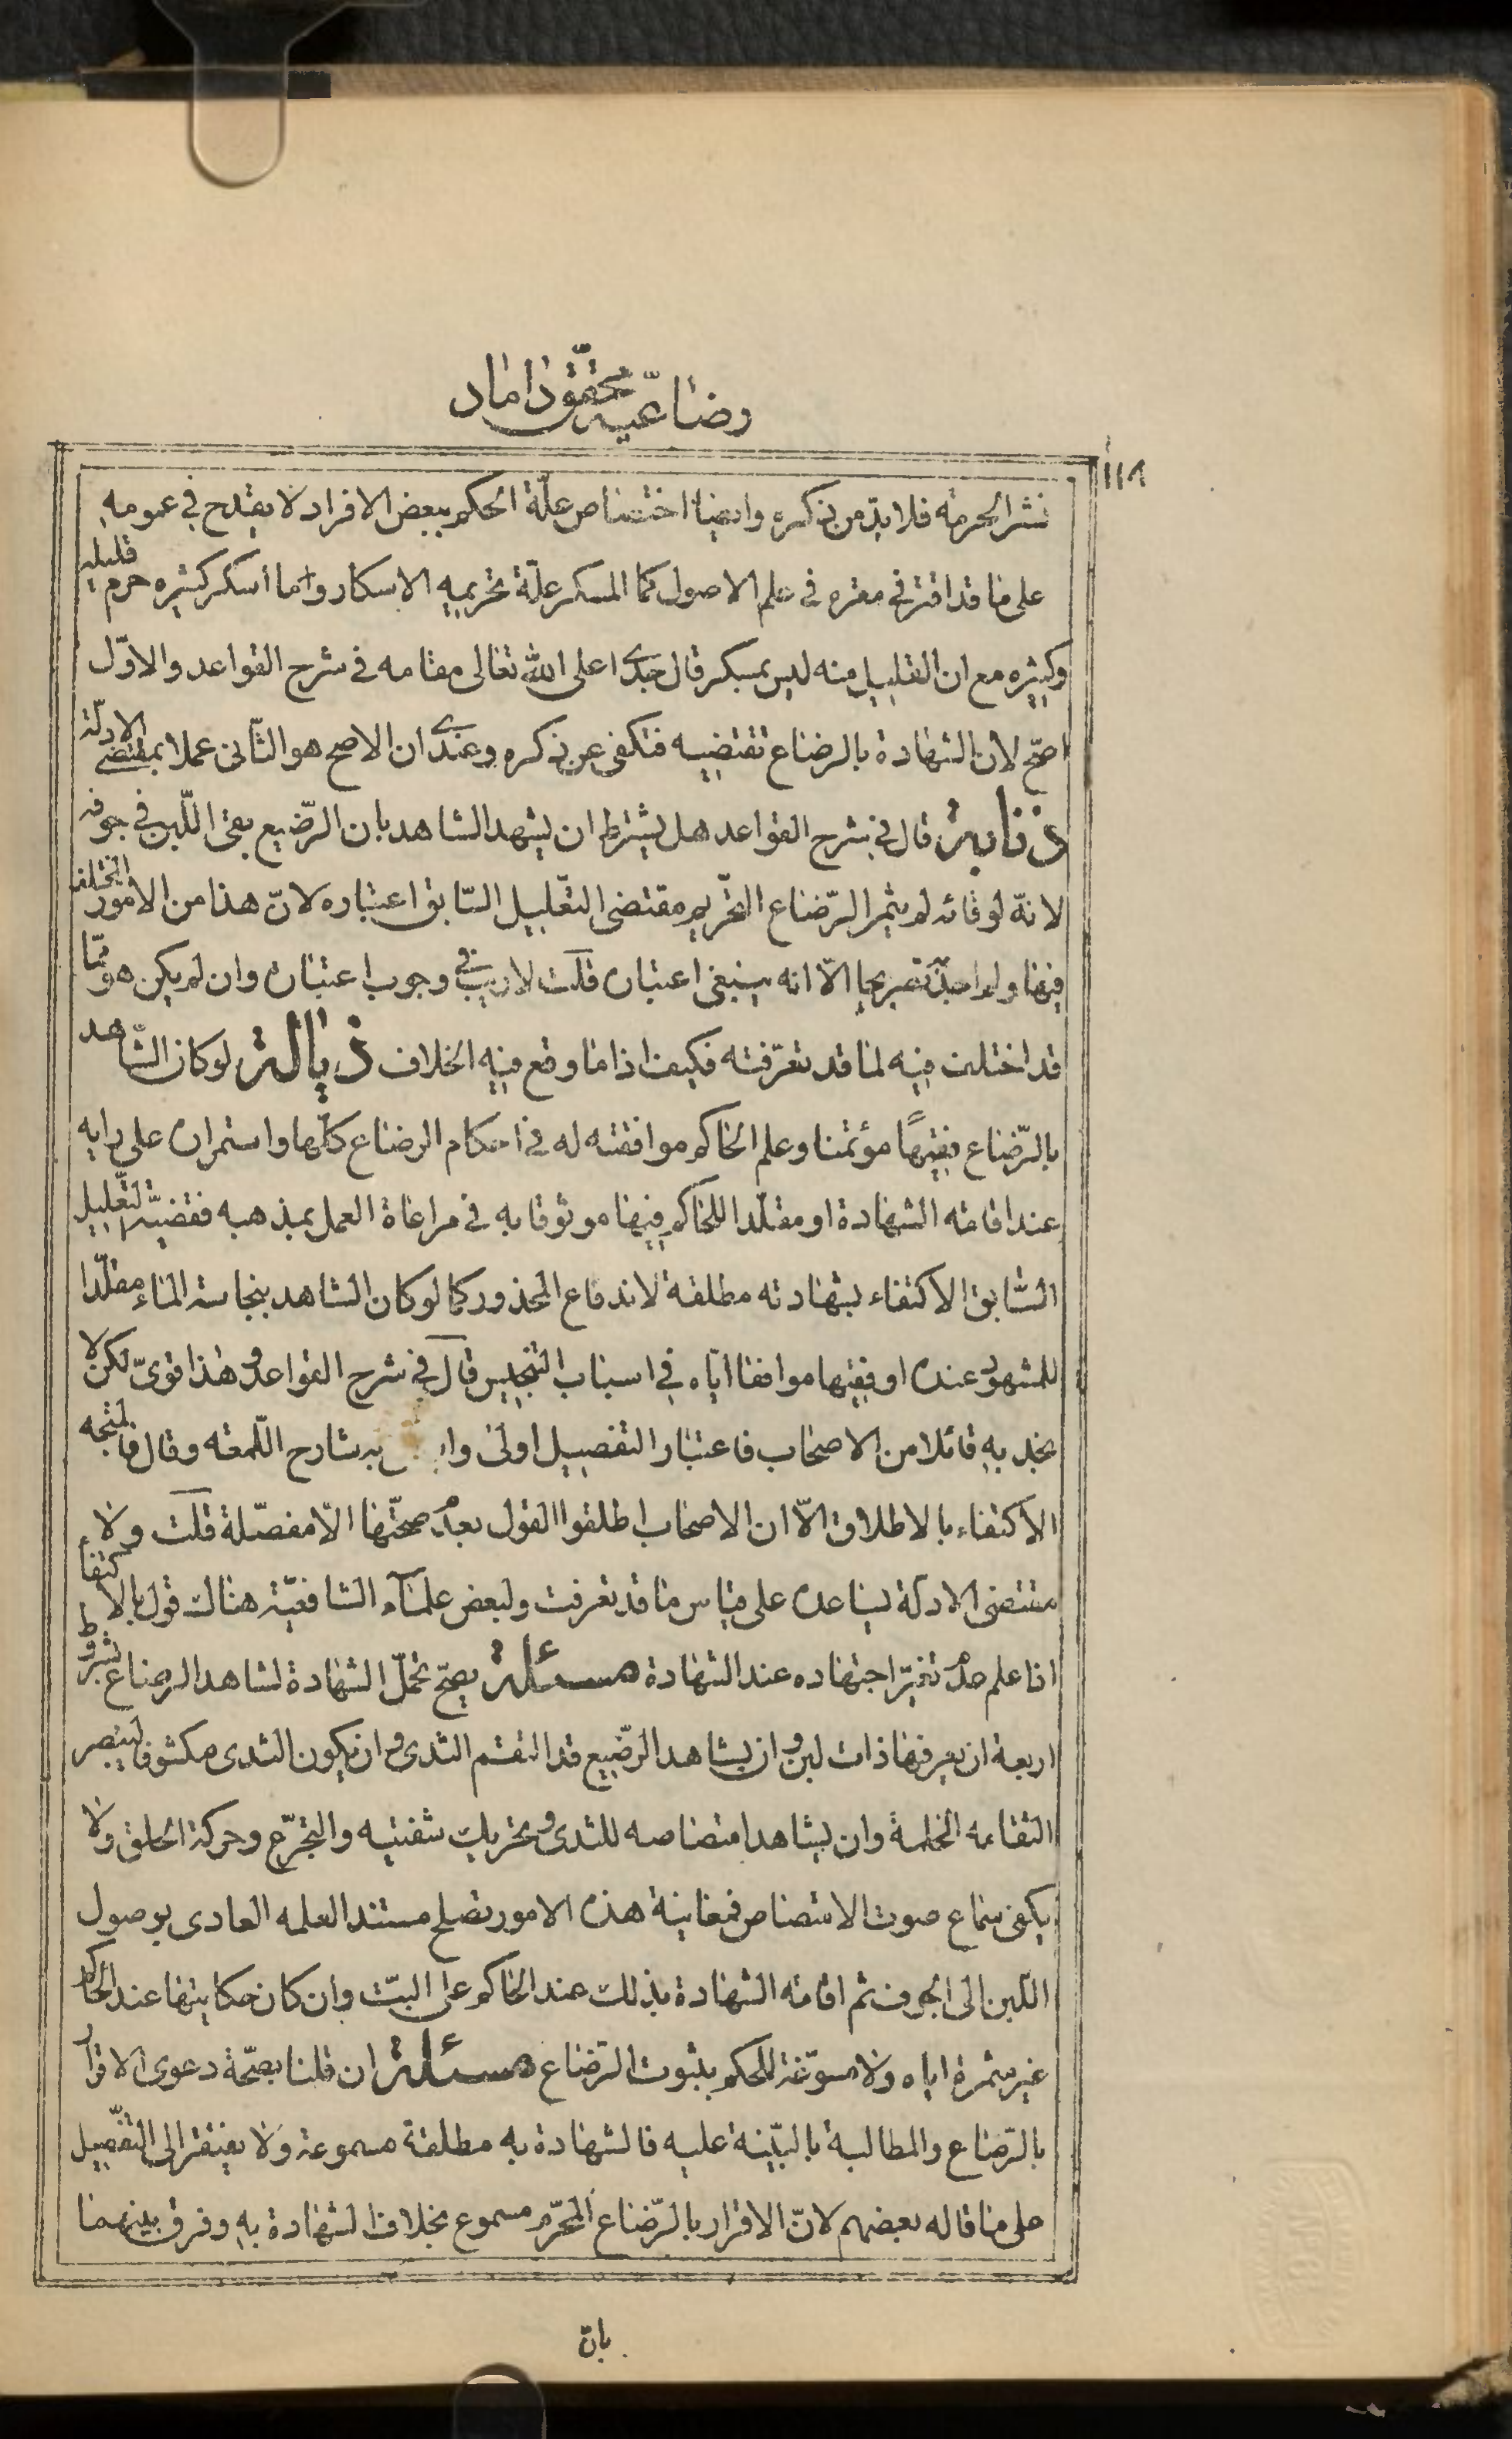 رضاعيّه محقّق داماد
١١٨
نشر الحرمة فلا بدّ من ذكره وايضا اختصاص علّة الحكم ببعض الافراد لا يقدح في عمومه
على ما قد اقترّ في مقره في علم الاصول كما المسكر علّة تحريمه الاسكار وما أسكر كثيره حرم قليله
وكثيره مع ان القليل منه ليس بمسكر قال جدّى اعلى الله تعالى مقامه في شرح القواعد والاوّل
اصحّ لان الشهادة بالرضاع تقتضيه فتكفى عن ذكره وعندى ان الاصح هو الثّانى عملا بمقتضى الادلّة
ذنابة قال في شرح القواعد هل يشترط ان يشهد الشاهد بان الرّضيع بقى اللّبن في جوفه
لانّه لو قائه لم يثمر الرّضاع التحريم مقتضى التعّليل السّابق اعتباره لانّ هذا من الامور المختلف
فيها ولم اجد تصريحا الّا انه ينبغى اعتباره قلت لا ريب في وجوب اعتباره وان لم يكن هو ممّا
قد اختلف فيه لما قد تعرّفته فكيف اذا ما وقع فيه الخلاف ذبالة لو كان الشّاهد
بالرّضاع فقيهًا مؤتمنا وعلم الحاكم موافقته له في احكام الرضاع كلّها واستمراره على رايه
عند اقامته الشهادة او مقلّدا للحاكم فيها موثوقا به في مراعاة العمل بمذهبه فقضيّة التّعليل
السّابق الاكتفاء بشهادته مطلقة لاندفاع المحذور كما لو كان الشاهد بنجاسة الماء مقلّدا
للمشهود عنده او فقيها موافقا ايّاه في اسباب التنجيس قال في شرح القواعد وهذا قوىّ لكن لا
نجد به قائلا من الاصحاب فاعتبار التفصيل اولى به شارح اللّمعة وقال فالمتّجه
الاكتفاء بالاطلاق الّا ان الاصحاب اطلقوا القول بعدم صحّتها الّا مفصّلة قلت ولا
مقتضى الادلّة يساعده على قياس ما قد تعرفت ولبعض علماء الشافعيّة هنالك قول بالاكتفاء
اذا علم عدم تغيّر اجتهاده عند الشهادة مسئلة يصحّ تحمّل الشهادة لشاهد الرضاع بشروط
اربعة ان يعرفها ذات لبن وان يشاهد الرّضيع قد التقم الثدى وان يكون الثدى مكشوفا ليبصر
التقامه الحلمة وان يشاهد امتصاصه للثدى وتحريك شفتيه والتجرّع وحركة الحلق ولا
يكفى سماع صوت الامتصاص فمعاينة هذه الامور تصلح مستند العلمه العادى بوصول
اللّبن الى الجوف ثم اقامته الشهادة بذلك عند الحاكم على البتّ وان كان حكايتها عند الحاكم
غير مثمرة اياه ولا مسوّغة للحكم بثبوت الرّضاع مسئلة ان قلنا بصحّة دعوى الاقرار
بالرّضاع والمطالبة بالبيّنة عليه فالشهادة به مطلقة مسموعة ولا يفتقر الى التفّصيل
على ما قاله بعضهم لانّ الاقرار بالرّضاع المحرّم مسموع بخلاف الشهادة به وفرق بينهما
بان